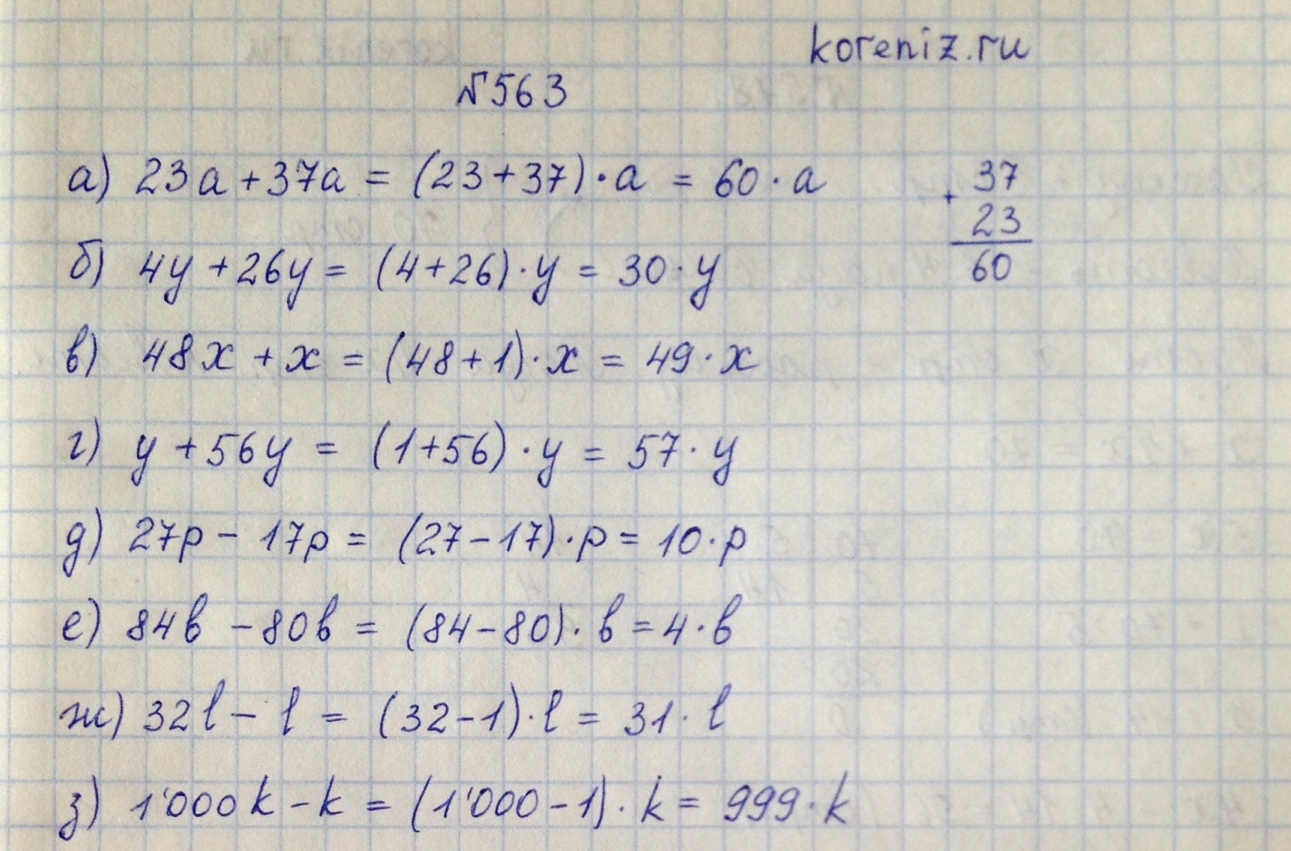 koreniz.ru
№563
а) 23a + 37a = (23+37)·a = 60·a
б) 4y + 26y = (4+26)·y = 30·y
в) 48x + x = (48+1)·x = 49·x
г) y + 56y = (1+56)·y = 57·y
д) 27p - 17p = (27-17)·p = 10·p
е) 84b - 80b = (84-80)·b = 4·b
ж) 32l - l = (32-1)·l = 31·l
з) 1'000k - k = (1'000-1)·k = 999·k
+ 37
23
60